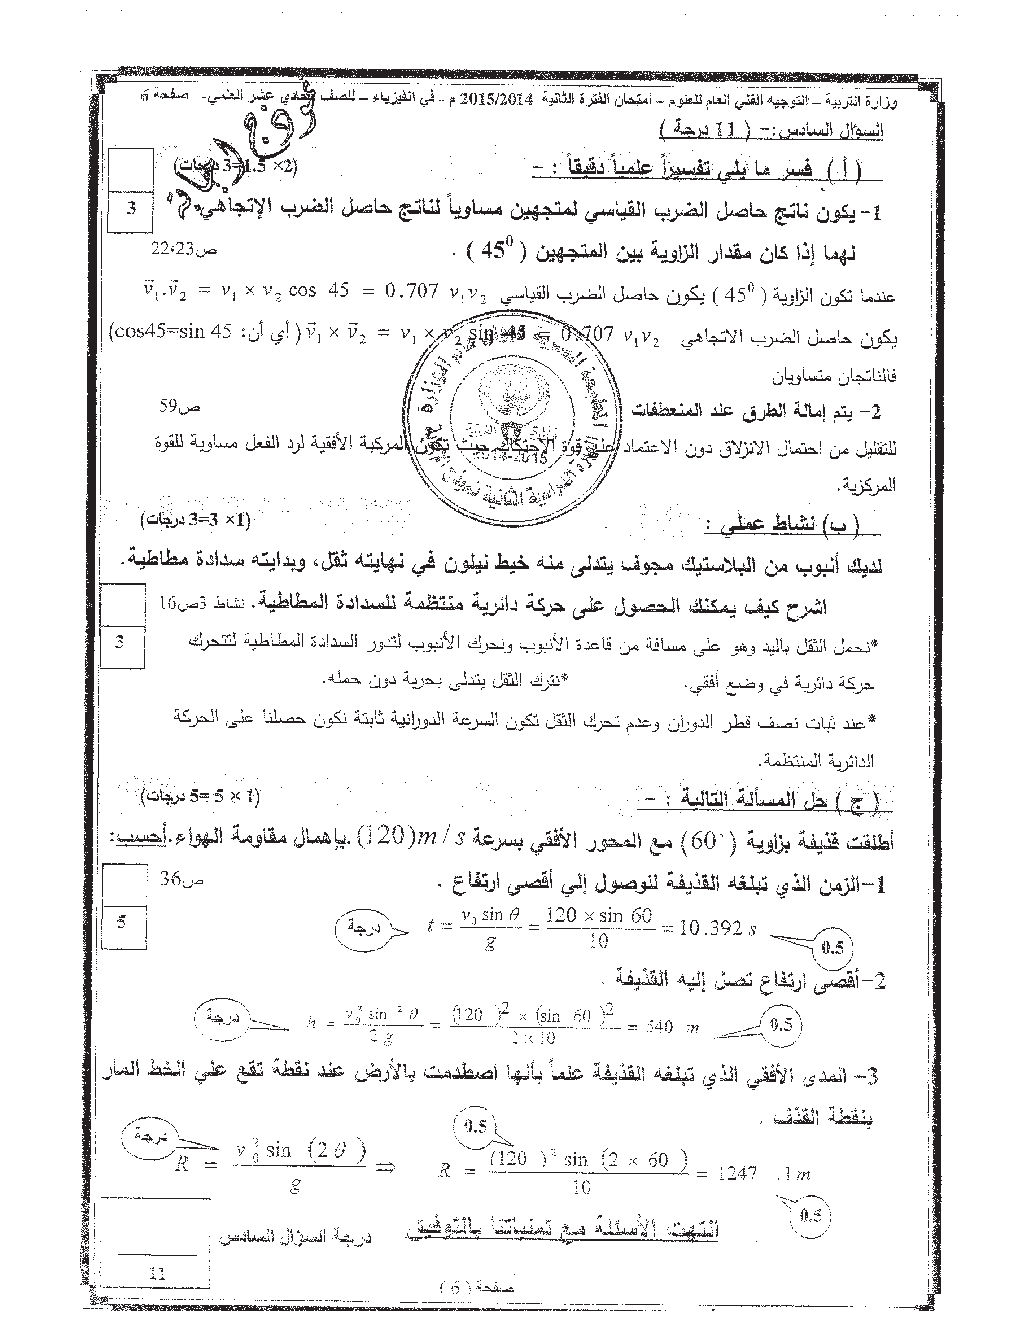 وزارة التربية – التوجيه الفني العام للعلوم – امتحان الفترة الثانية 2015/2014 م – في الفيزياء – للصف الحادي عشر العلمي- صفحة 6
السؤال السادس:- ( 11 درجة )
( أ ) فسر ما يلي تفسيراً علمياً دقيقاً : - (2× 1.5=3 درجات)
1- يكون ناتج حاصل الضرب القياسي لمتجهين مساوياً لناتج حاصل الضرب الإتجاهي
3
لهما إذا كان مقدار الزاوية بين المتجهين ( 45⁰ ) . ص22،23
عندما تكون الزاوية ( 45⁰ ) يكون حاصل الضرب القياسي v⃗₁.v⃗₂ = v₁ × v₂ cos 45 = 0.707 v₁v₂
يكون حاصل الضرب الاتجاهي v⃗₁ × v⃗₂ = v₁ × v₂ sin 45 = 0.707 v₁v₂ ( أي أن: cos45=sin 45)
فالناتجان متساويان
2- يتم إمالة الطرق عند المنعطفات ص59
للتقليل من احتمال الانزلاق دون الاعتماد على قوة الاحتكاك حيث تكون المركبة الأفقية لرد الفعل مساوية للقوة
المركزية.
( ب) نشاط عملي : (1× 3=3 درجات)
لديك أنبوب من البلاستيك مجوف يتدلى منه خيط نيلون في نهايته ثقل، وبدايته سدادة مطاطية.
اشرح كيف يمكنك الحصول على حركة دائرية منتظمة للسدادة المطاطية. نشاط 3ص16
3
*نحمل الثقل باليد وهو على مسافة من قاعدة الأنبوب ونحرك الأنبوب لتدور السدادة المطاطية لتتحرك
حركة دائرية في وضع أفقي. *نترك الثقل يتدلى بحرية دون حمله.
*عند ثبات نصف قطر الدوران وعدم تحرك الثقل تكون السرعة الدورانية ثابتة نكون حصلنا على الحركة
الدائرية المنتظمة.
( ج ) حل المسألة التالية : - (1 × 5 =5 درجات)
أطلقت قذيفة بزاوية ( 60° ) مع المحور الأفقي بسرعة (120)m / s بإهمال مقاومة الهواء .أحسب:
1-الزمن الذي تبلغه القذيفة للوصول إلي أقصي ارتفاع . ص36
5
درجة t = v₀ sin θ / g = 120 × sin 60 / 10 = 10.392 s 0.5
2-أقصى ارتفاع تصل إليه القذيفة .
درجة h = v₀² sin² θ / 2 g = (120 )² × (sin 60 )² / 2 × 10 = 540 m 0.5
3- المدى الأفقي الذي تبلغه القذيفة علماً بأنها اصطدمت بالأرض عند نقطة تقع علي الخط المار
بنقطة القذف .
درجة R = v₀² sin (2 θ ) / g ⇒ R = (120 )² sin (2 × 60 ) / 10 = 1247 .1 m 0.5 0.5
انتهت الأسئلة مع تمنياتنا بالتوفيق
درجة السؤال السادس
11
صفحة ( 6 )